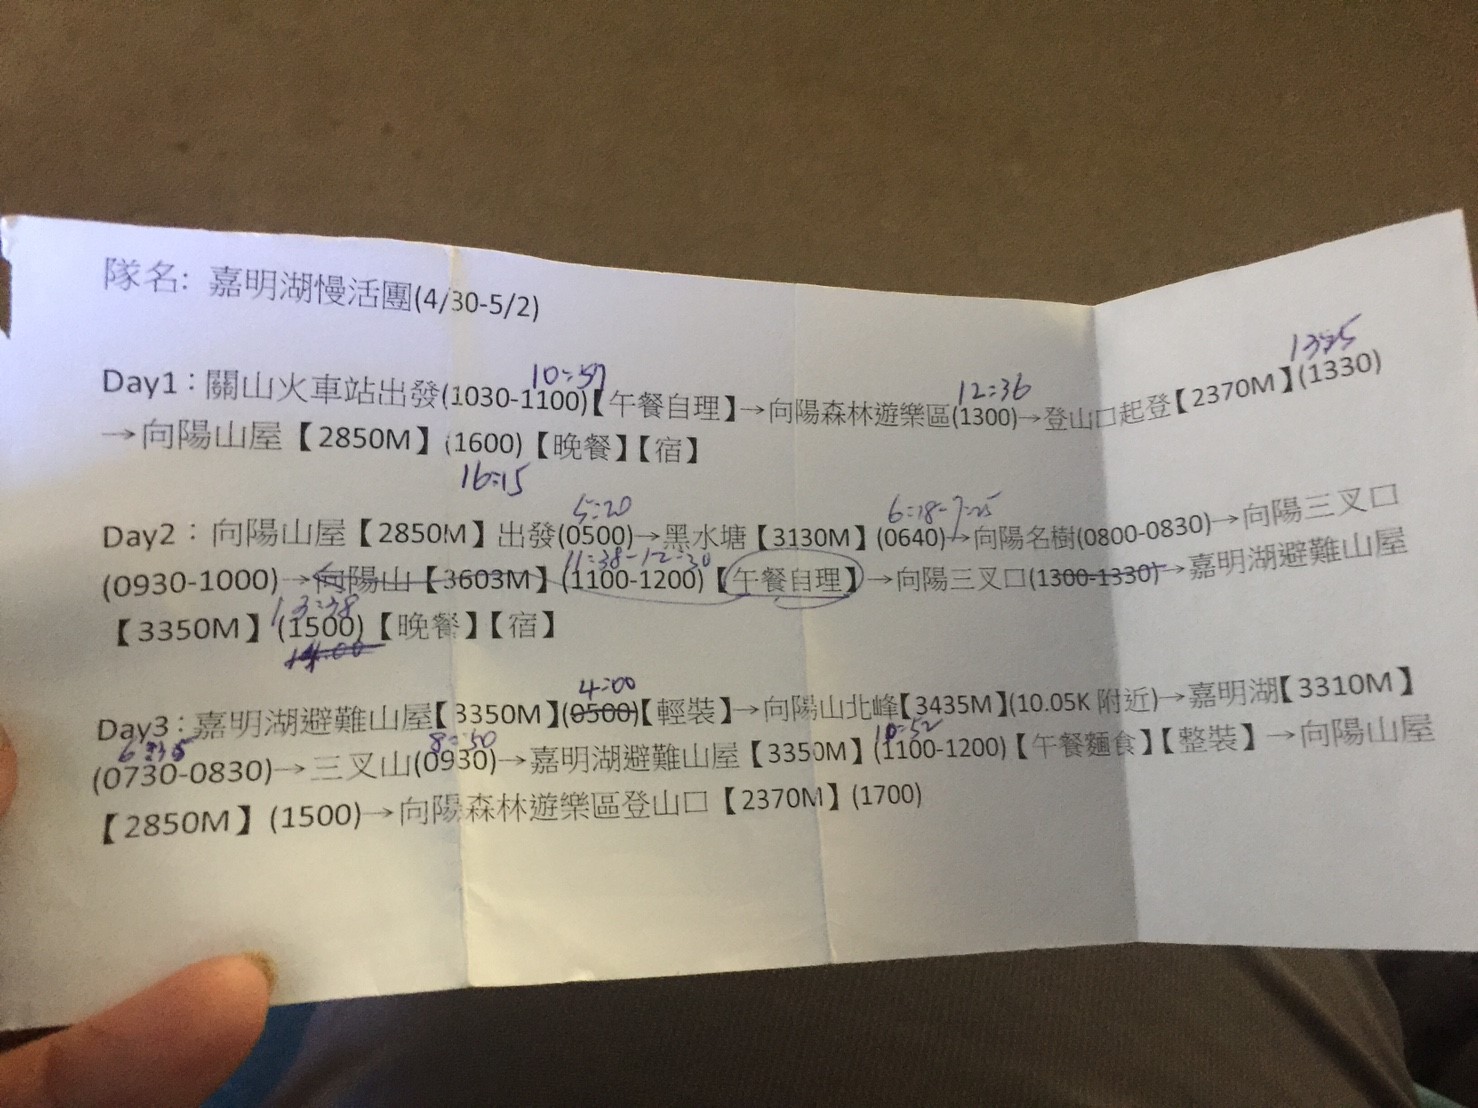 隊名: 嘉明湖慢活團(4/30-5/2)
10:57 12:36
Day1：關山火車站出發(1030-1100)【午餐自理】→向陽森林遊樂區(1300)→登山口起登【2370M】(1330)
→向陽山屋【2850M】(1600)【晚餐】【宿】
16:15
5:20 6:18-7:25
Day2：向陽山屋【2850M】出發(0500)→黑水塘【3130M】(0640)→向陽名樹(0800-0830)→向陽三叉口
11:38-12:30
(0930-1000)→向陽山【3603M】(1100-1200)【午餐自理】→向陽三叉口(1300-1330)→嘉明湖避難山屋
13:38
【3350M】(1500)【晚餐】【宿】
14:00
4:00
Day3：嘉明湖避難山屋【3350M】(0500)【輕裝】→向陽山北峰【3435M】(10.05K 附近)→嘉明湖【3310M】
8:50 10:52
(0730-0830)→三叉山(0930)→嘉明湖避難山屋【3350M】(1100-1200)【午餐麵食】【整裝】→向陽山屋
【2850M】(1500)→向陽森林遊樂區登山口【2370M】(1700)